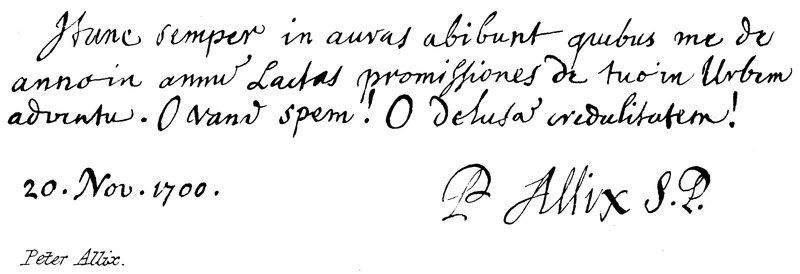 semper in auras abibunt quibus me de
anno in annū Lactas promissiones de tuo in Urbem
adventu. O vanā spem! O delusā credulitatem!
20. Nov. 1700.
P Allix S. P.
Peter Allix.